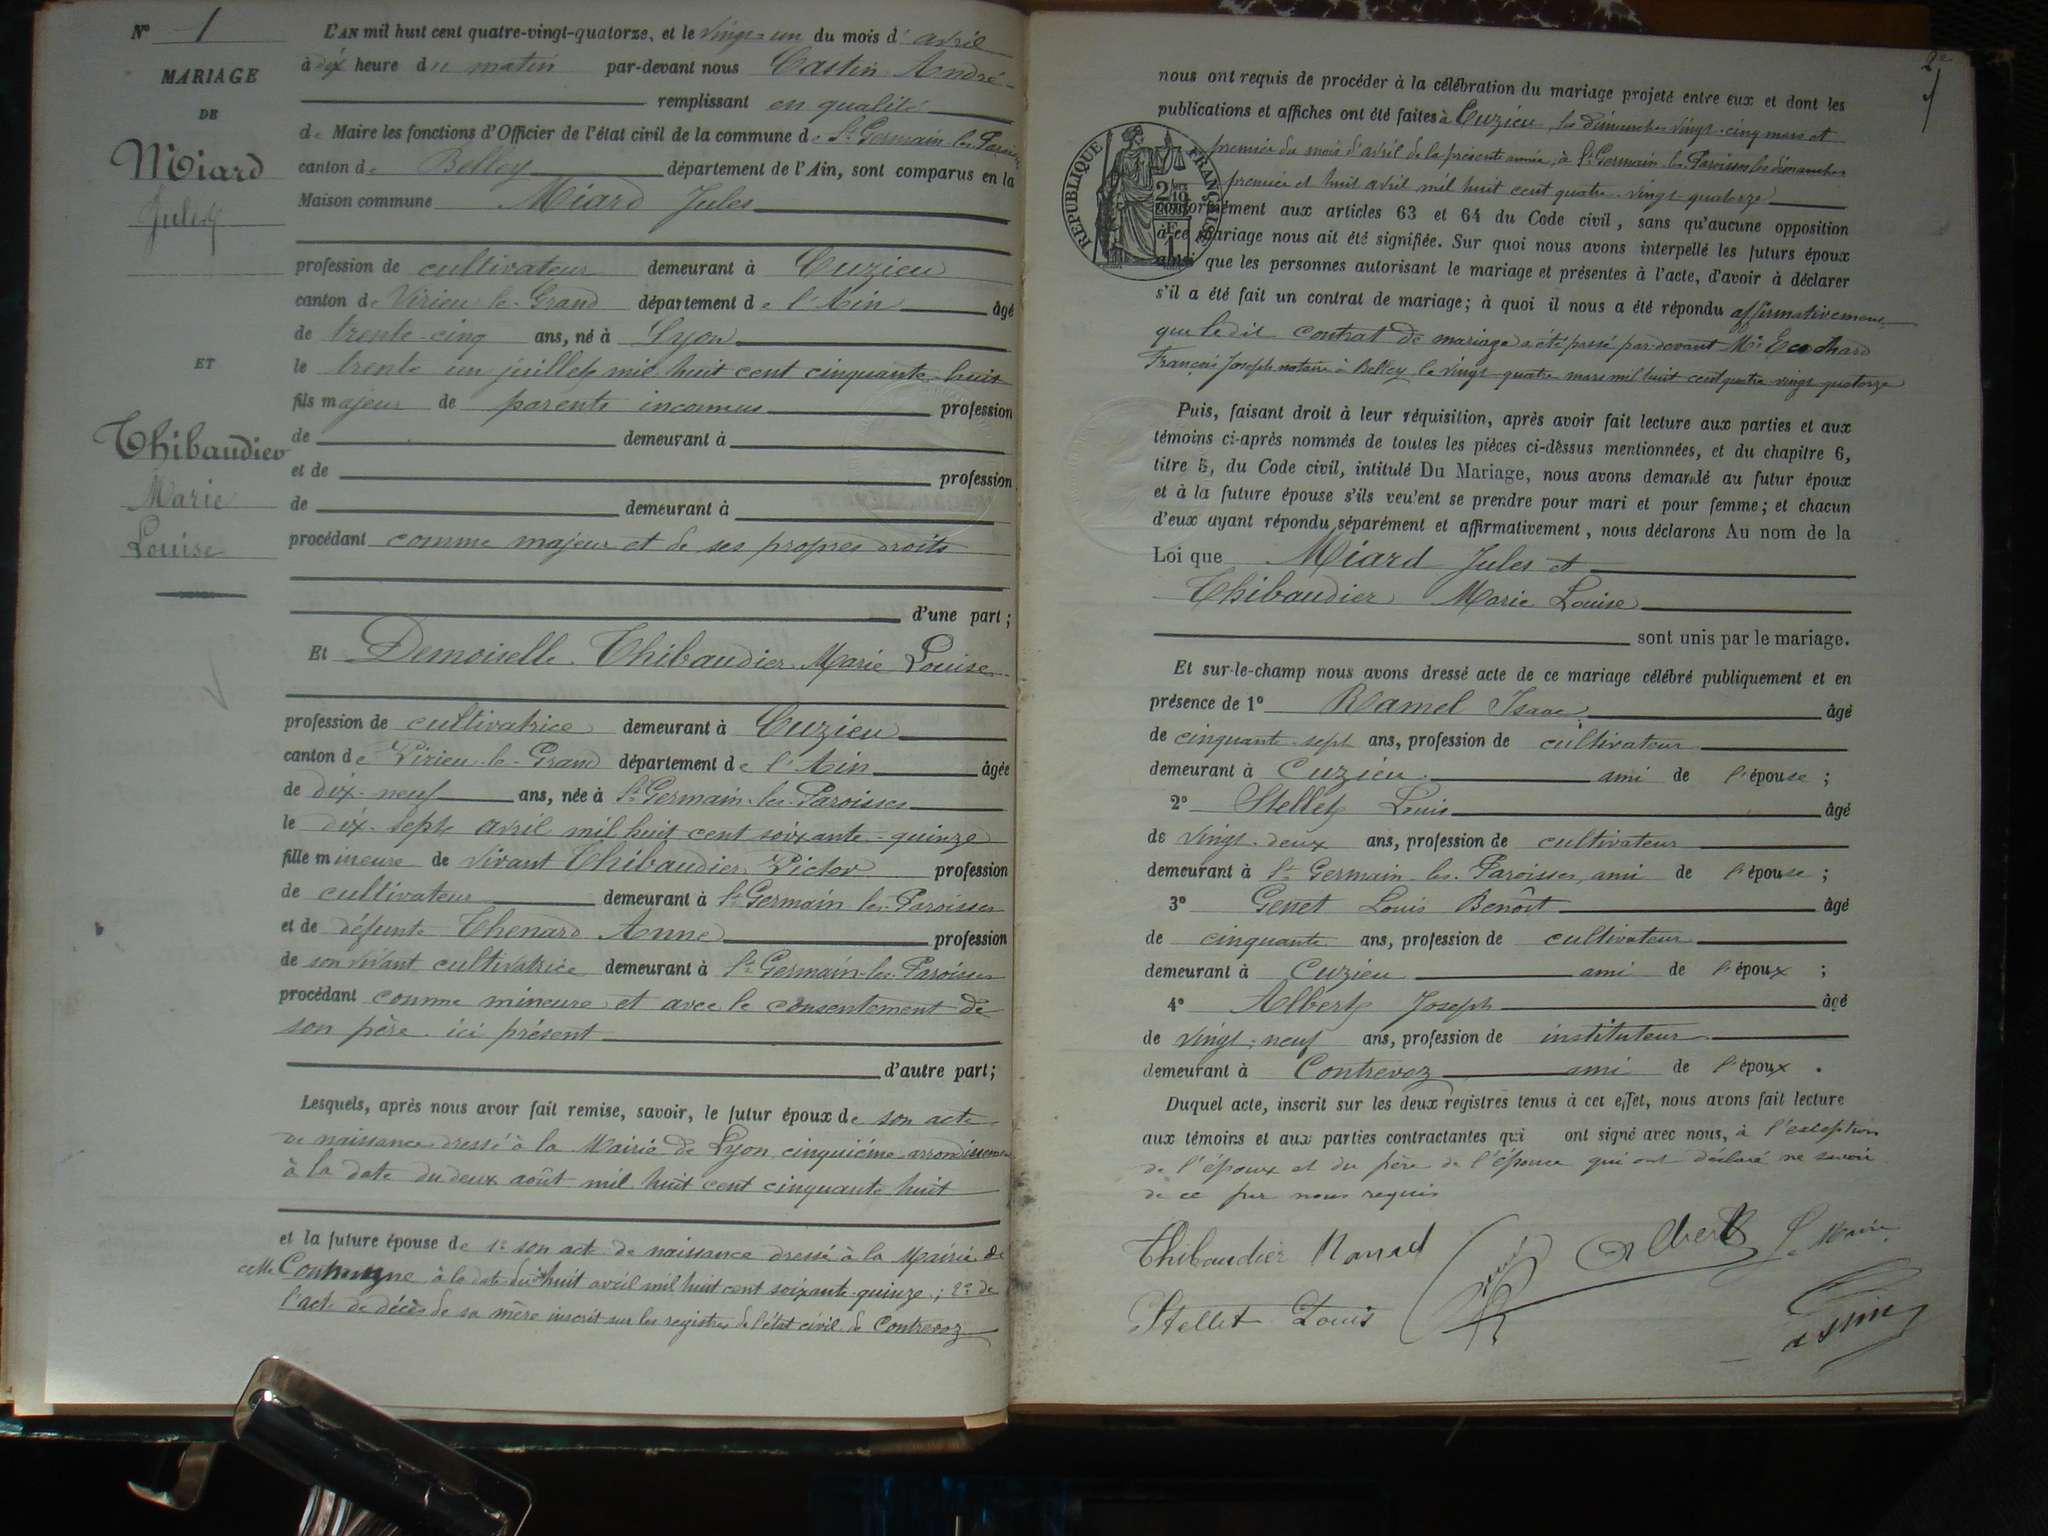 N° 1
MARIAGE
DE
Miard
Jules
ET
Thibaudier
Marie
Louise
L'AN mil huit cent quatre-vingt-quatorze, et le vingt-un du mois d'avril
à dix heure du matin par-devant nous Castin André
remplissant en qualité
de Maire les fonctions d'Officier de l'état civil de la commune de St Germain-les-Paroisses
canton de Belley département de l'Ain, sont comparus en la
Maison commune Miard Jules
profession de cultivateur demeurant à Cuzieu
canton de Virieu-le-Grand département de l'Ain âgé
de trente-cinq ans, né à Lyon
le trente un juillet mil huit cent cinquante-huit
fils majeur de parents inconnus profession
de demeurant à
et de profession
de demeurant à
procédant comme majeur et de ses propres droits
d'une part;
Et Demoiselle Thibaudier Marie Louise
profession de cultivatrice demeurant à Cuzieu
canton de Virieu-le-Grand département de l'Ain âgée
de dix-neuf ans, née à St Germain-les-Paroisses
le dix-sept avril mil huit cent soixante-quinze
fille mineure de vivant Thibaudier Victor profession
de cultivateur demeurant à St Germain les Paroisses
et de défunte Thenard Anne profession
de son vivant cultivatrice demeurant à St Germain-les-Paroisses
procédant comme mineure et avec le consentement de
son père ici présent
d'autre part;
Lesquels, après nous avoir fait remise, savoir, le futur époux de son acte
de naissance dressé à la Mairie de Lyon cinquième arrondissement
à la date du deux août mil huit cent cinquante huit
et la future épouse de 1° son acte de naissance dressé à la Mairie de
cette Commune à la date du huit avril mil huit cent soixante-quinze; 2° de
l'acte de décès de sa mère inscrit sur les registres de l'état civil de Contrevoz
2e
nous ont requis de procéder à la célébration du mariage projeté entre eux et dont les
publications et affiches ont été faites à Cuzieu, les dimanches vingt-cinq mars et
premier du mois d'avril de la présente année, à St Germain les Paroisses les dimanches
premier et huit avril mil huit cent quatre-vingt-quatorze
REPUBLIQUE FRANÇAISE
conformément aux articles 63 et 64 du Code civil, sans qu'aucune opposition
à ce mariage nous ait été signifiée. Sur quoi nous avons interpellé les futurs époux
ainsi que les personnes autorisant le mariage et présentes à l'acte, d'avoir à déclarer
s'il a été fait un contrat de mariage; à quoi il nous a été répondu affirmativement
que ledit contrat de mariage a été passé par-devant Me
François Joseph notaire à Belley le vingt-quatre mars mil huit cent quatre vingt quatorze
Puis, faisant droit à leur réquisition, après avoir fait lecture aux parties et aux
témoins ci-après nommés de toutes les pièces ci-dessus mentionnées, et du chapitre 6,
titre 5, du Code civil, intitulé Du Mariage, nous avons demandé au futur époux
et à la future épouse s'ils veulent se prendre pour mari et pour femme; et chacun
d'eux ayant répondu séparément et affirmativement, nous déclarons Au nom de la
Loi que Miard Jules et
Thibaudier Marie Louise
sont unis par le mariage.
Et sur-le-champ nous avons dressé acte de ce mariage célébré publiquement et en
présence de 1° Ramel Isaac âgé
de cinquante-sept ans, profession de cultivateur
demeurant à Cuzieu ami de l'épouse;
2° Stellet Louis âgé
de vingt-deux ans, profession de cultivateur
demeurant à St Germain-les-Paroisses, ami de l'épouse;
3° Genet Louis Benoît âgé
de cinquante ans, profession de cultivateur
demeurant à Cuzieu ami de l'époux;
4° Albert Joseph âgé
de vingt-neuf ans, profession de instituteur
demeurant à Contrevoz ami de l'époux.
Duquel acte, inscrit sur les deux registres tenus à cet effet, nous avons fait lecture
aux témoins et aux parties contractantes qui ont signé avec nous, à l'exception
de l'époux et du père de l'épouse qui ont déclaré ne savoir
de ce par nous requis
Thibaudier Albert Le Maire
Stellet Louis